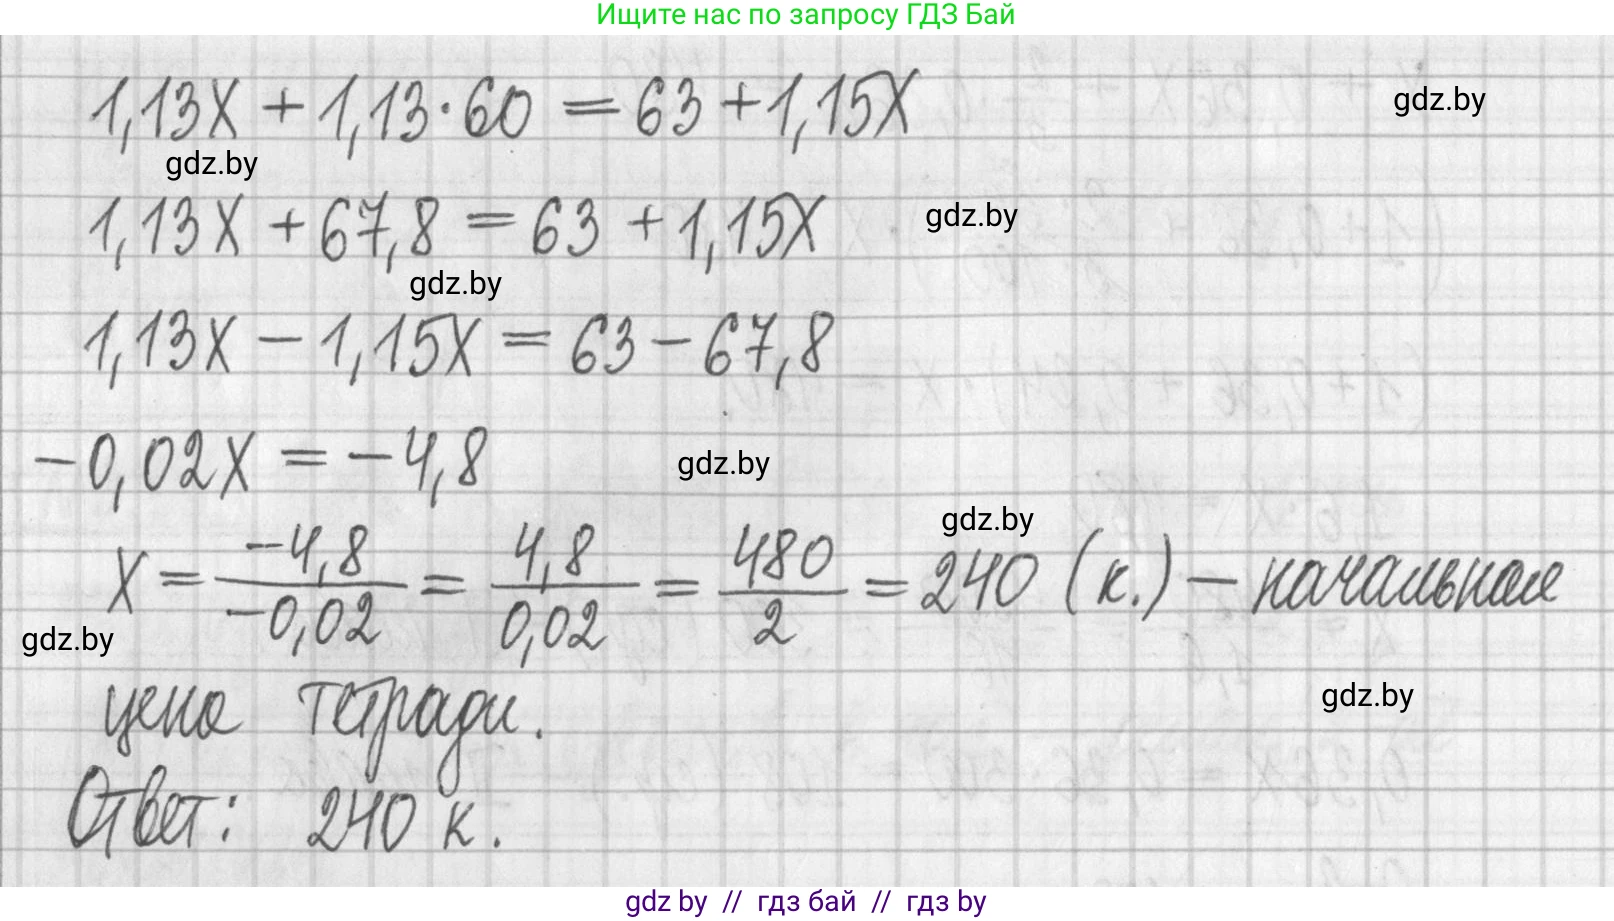 Ищите нас по запросу ГДЗ Бай
1,13X + 1,13·60 = 63 + 1,15X
gdz.by
gdz.by
1,13X + 67,8 = 63 + 1,15X
gdz.by
gdz.by
1,13X - 1,15X = 63 - 67,8
-0,02X = -4,8
gdz.by
gdz.by
X = -4,8/-0,02 = 4,8/0,02 = 480/2 = 240 (к.) - начальная
gdz.by
цена тетради.
gdz.by
Ответ: 240 к.
gdz.by // гдз бай // гдз by